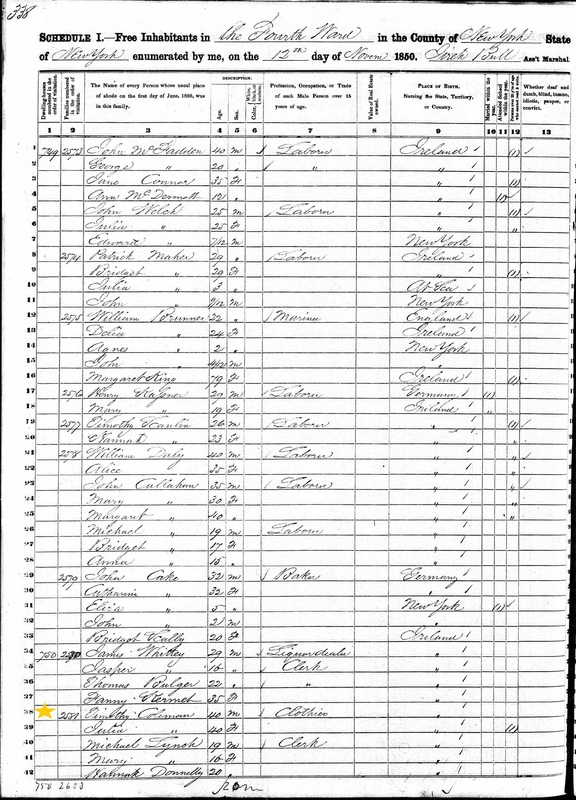 338
SCHEDULE I.—Free Inhabitants in the Fourth Ward in the County of New York State
of New York enumerated by me, on the 12th day of Novem 1850. Bull Ass't Marshal.
Dwelling-houses numbered in the order of visitation.
Families numbered in the order of visitation.
The Name of every Person whose usual place of abode on the first day of June, 1850, was in this family.
DESCRIPTION.
Age.
Sex.
Color,
Profession, Occupation, or Trade of each Male Person over 15 years of age.
Value of Real Estate owned.
PLACE OF BIRTH. Naming the State, Territory, or Country.
Married within the year.
Attended School within the year.
Whether deaf and dumb, blind, insane, idiotic, pauper, or convict.
1 2 3 4 5 6 7 8 9 10 11 12 13
1 749 2573 John McFadden 40 m Laborer Ireland
2 George " 20 " " "
3 Jane Connor 35 F "
4 Ann McDermott 12 " "
5 John Welch 25 m Laborer "
6 Julia " 25 F "
7 Edward " 7/12 m New York
8 2574 Patrick Maher 29 " Laborer Ireland
9 Bridget " 29 F "
10 Julia " 3 " At Sea
11 John " m New York
12 2575 William Brunner 22 " England
13 Delia " 24 F Ireland
14 Agnes " 2 " New York
15 John " 4/12 m "
16 Margaret King 79 F Ireland
17 2576 Henry 29 m Laborer Germany
18 Mary " 19 F Ireland
19 2577 Timothy Hanlin 26 m Laborer "
20 Hannah " 23 F "
21 2578 William Daly 40 m Laborer "
22 Alice " 35 F "
23 John Callahan 35 m Laborer "
24 Mary " 30 F "
25 Margaret " 40 " "
26 Michael " 19 m Laborer "
27 Bridget " 17 F "
28 Anna " 15 " "
29 2579 John Cake 32 m Baker Germany
30 Catharine " 32 F "
31 Eliza " 5 " New York
32 John " 2 m "
33 Bridget Kally 20 F Ireland
34 750 2580 James Whitley 29 m Liquor dealer "
35 Jasper " 16 " Clerk "
36 Thomas Bulger 22 " " "
37 Fanny Kermet 35 F "
38 2581 Timothy Coleman 40 m Clothier "
39 Julia " 40 F "
40 Michael Lynch 19 m Clerk "
41 Mary " 16 F "
42 Hannah Donnelly 20 " "
750 2603